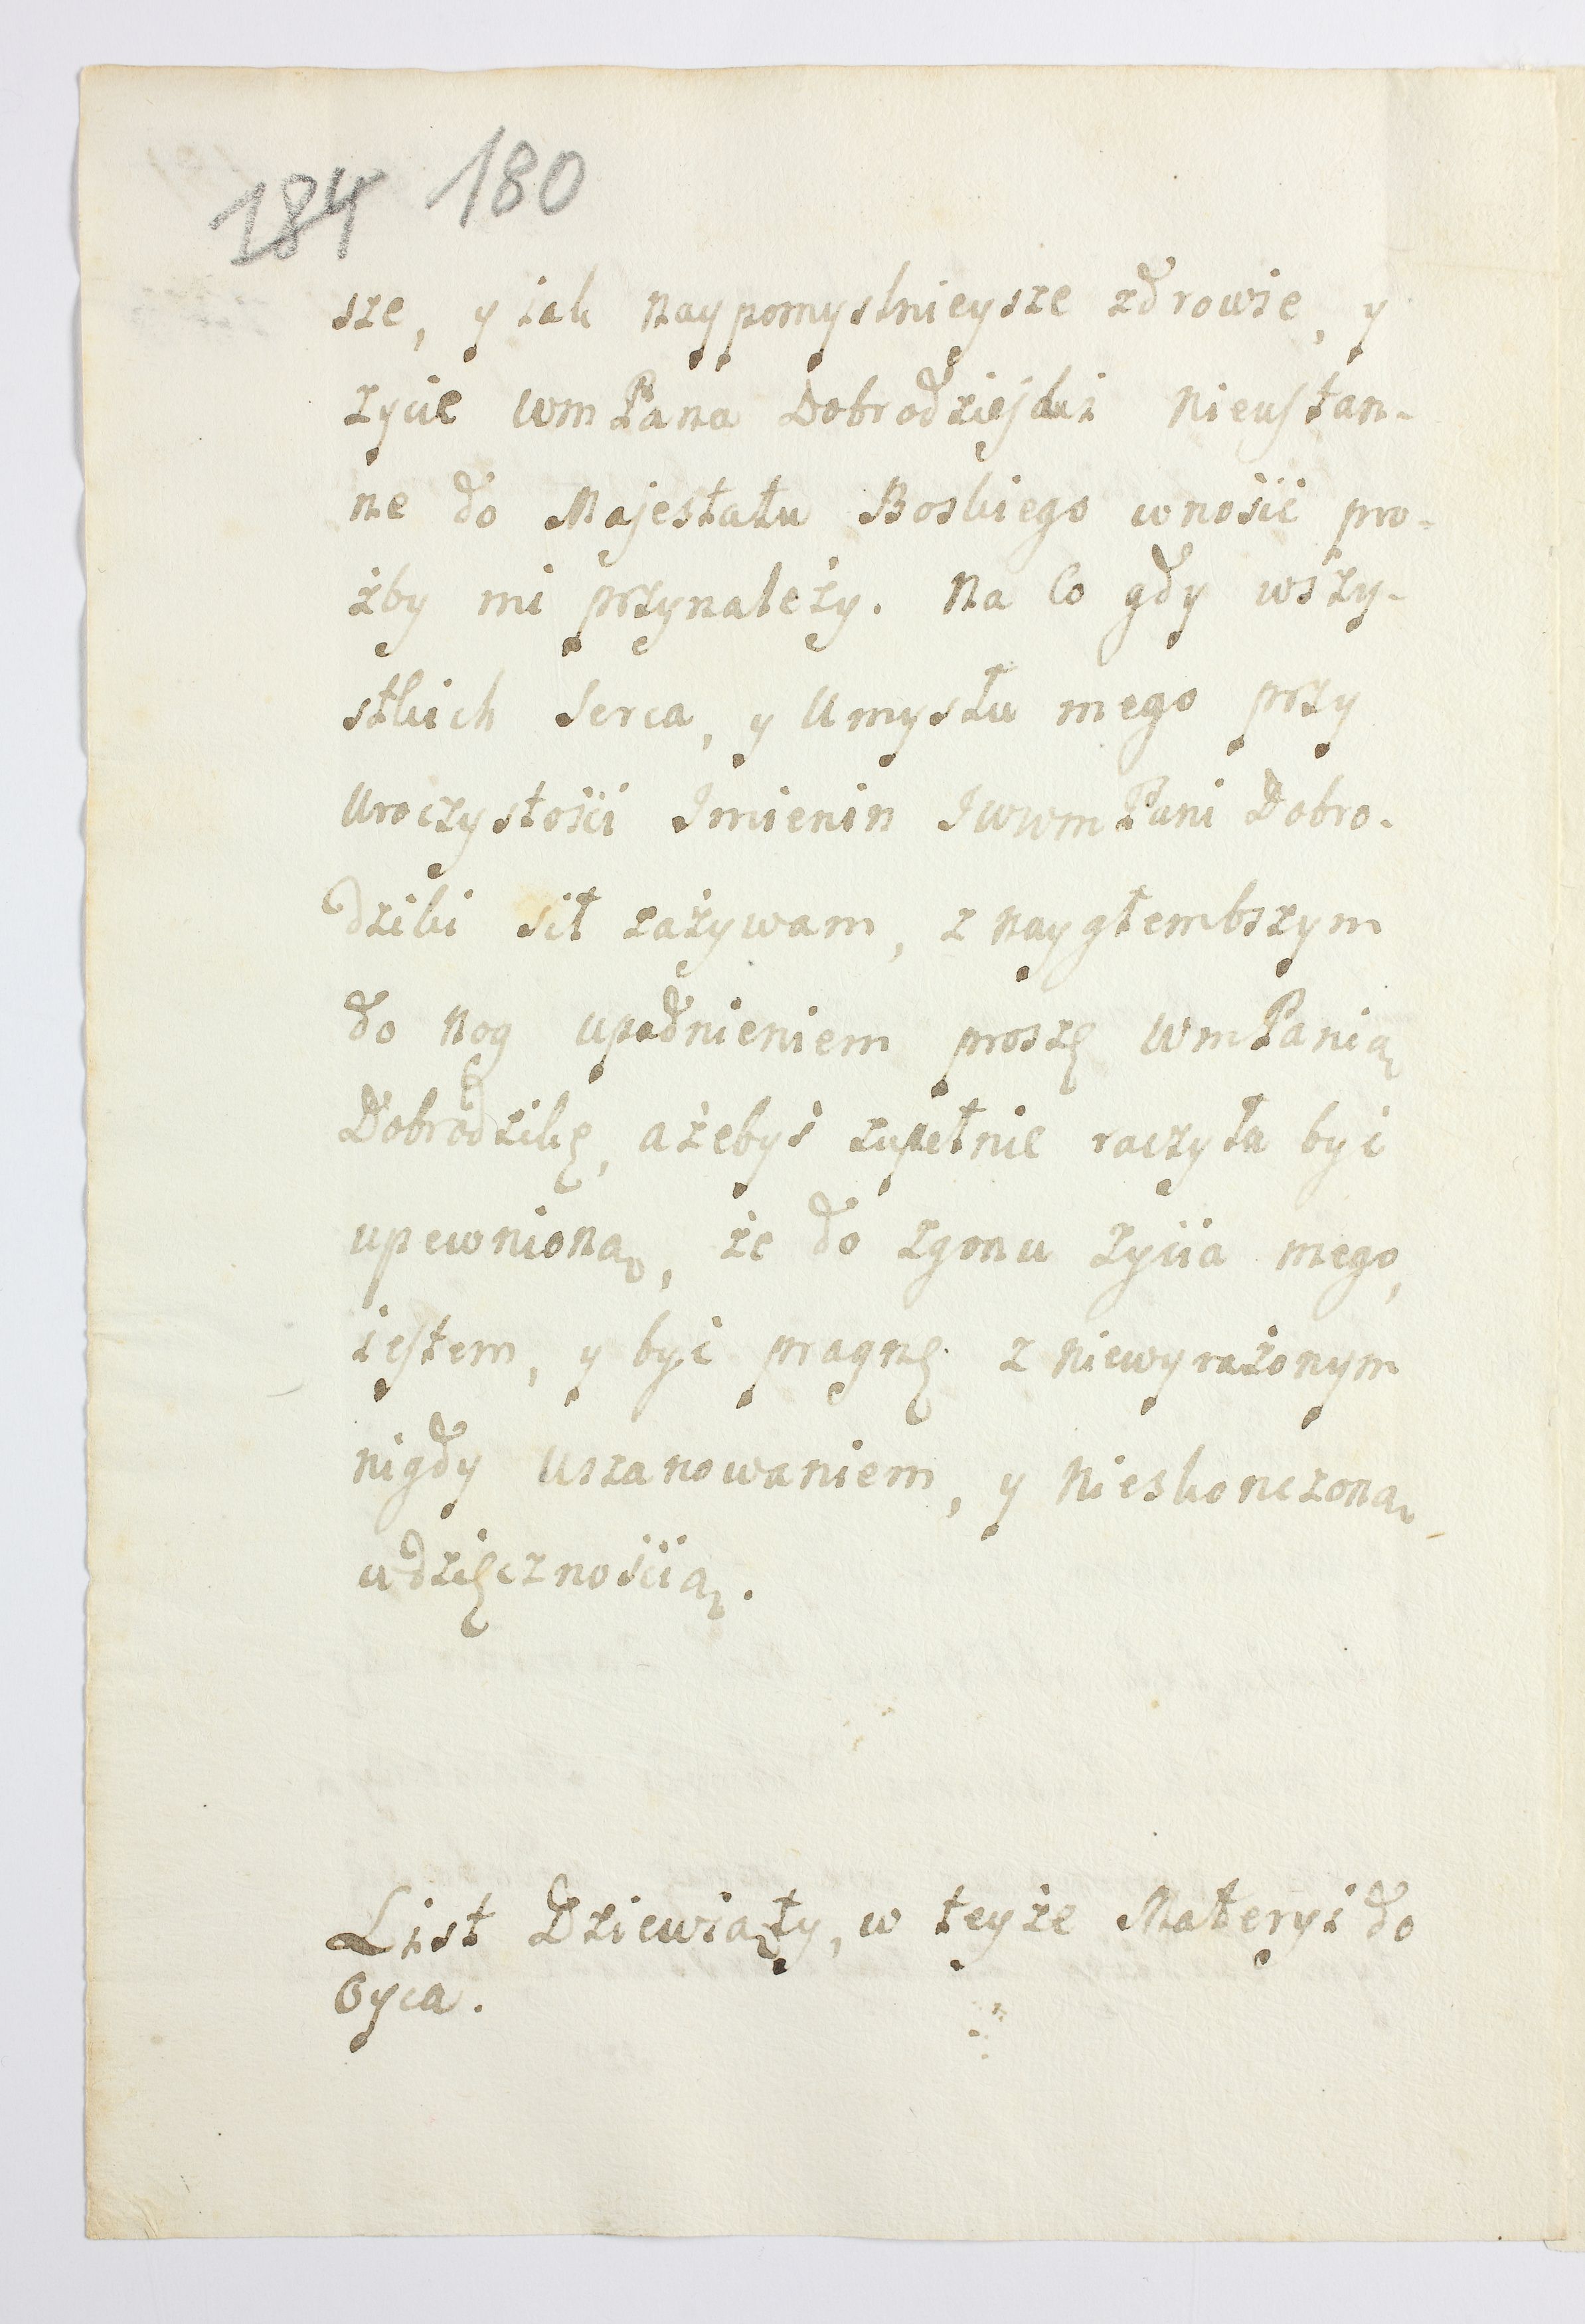 184 180
sze, y iak naypomyslnieysze zdrowie, y
zycie wm Pana Dobrodziejki nieustan-
ne do Majestatu Boskiego wnosić pro-
żby mi przynależy. Na co gdy wszy-
stkich serca, y umysłu mego przy
uroczystości Imienin Jwwm Pani Dobro-
dziki sił zażywam, z naygłembszym
do nog upadnieniem proszę wm Panią
Dobrodzikę, ażebyś zupełnie raczyła być
upewnioną, że do zgonu życia mego,
iestem, y być pragnę z niewyrażonym
nigdy uszanowaniem, y nieskonczoną
wdzięcznością.
List Dziewiąty, w teyże Materyi do
Oyca.